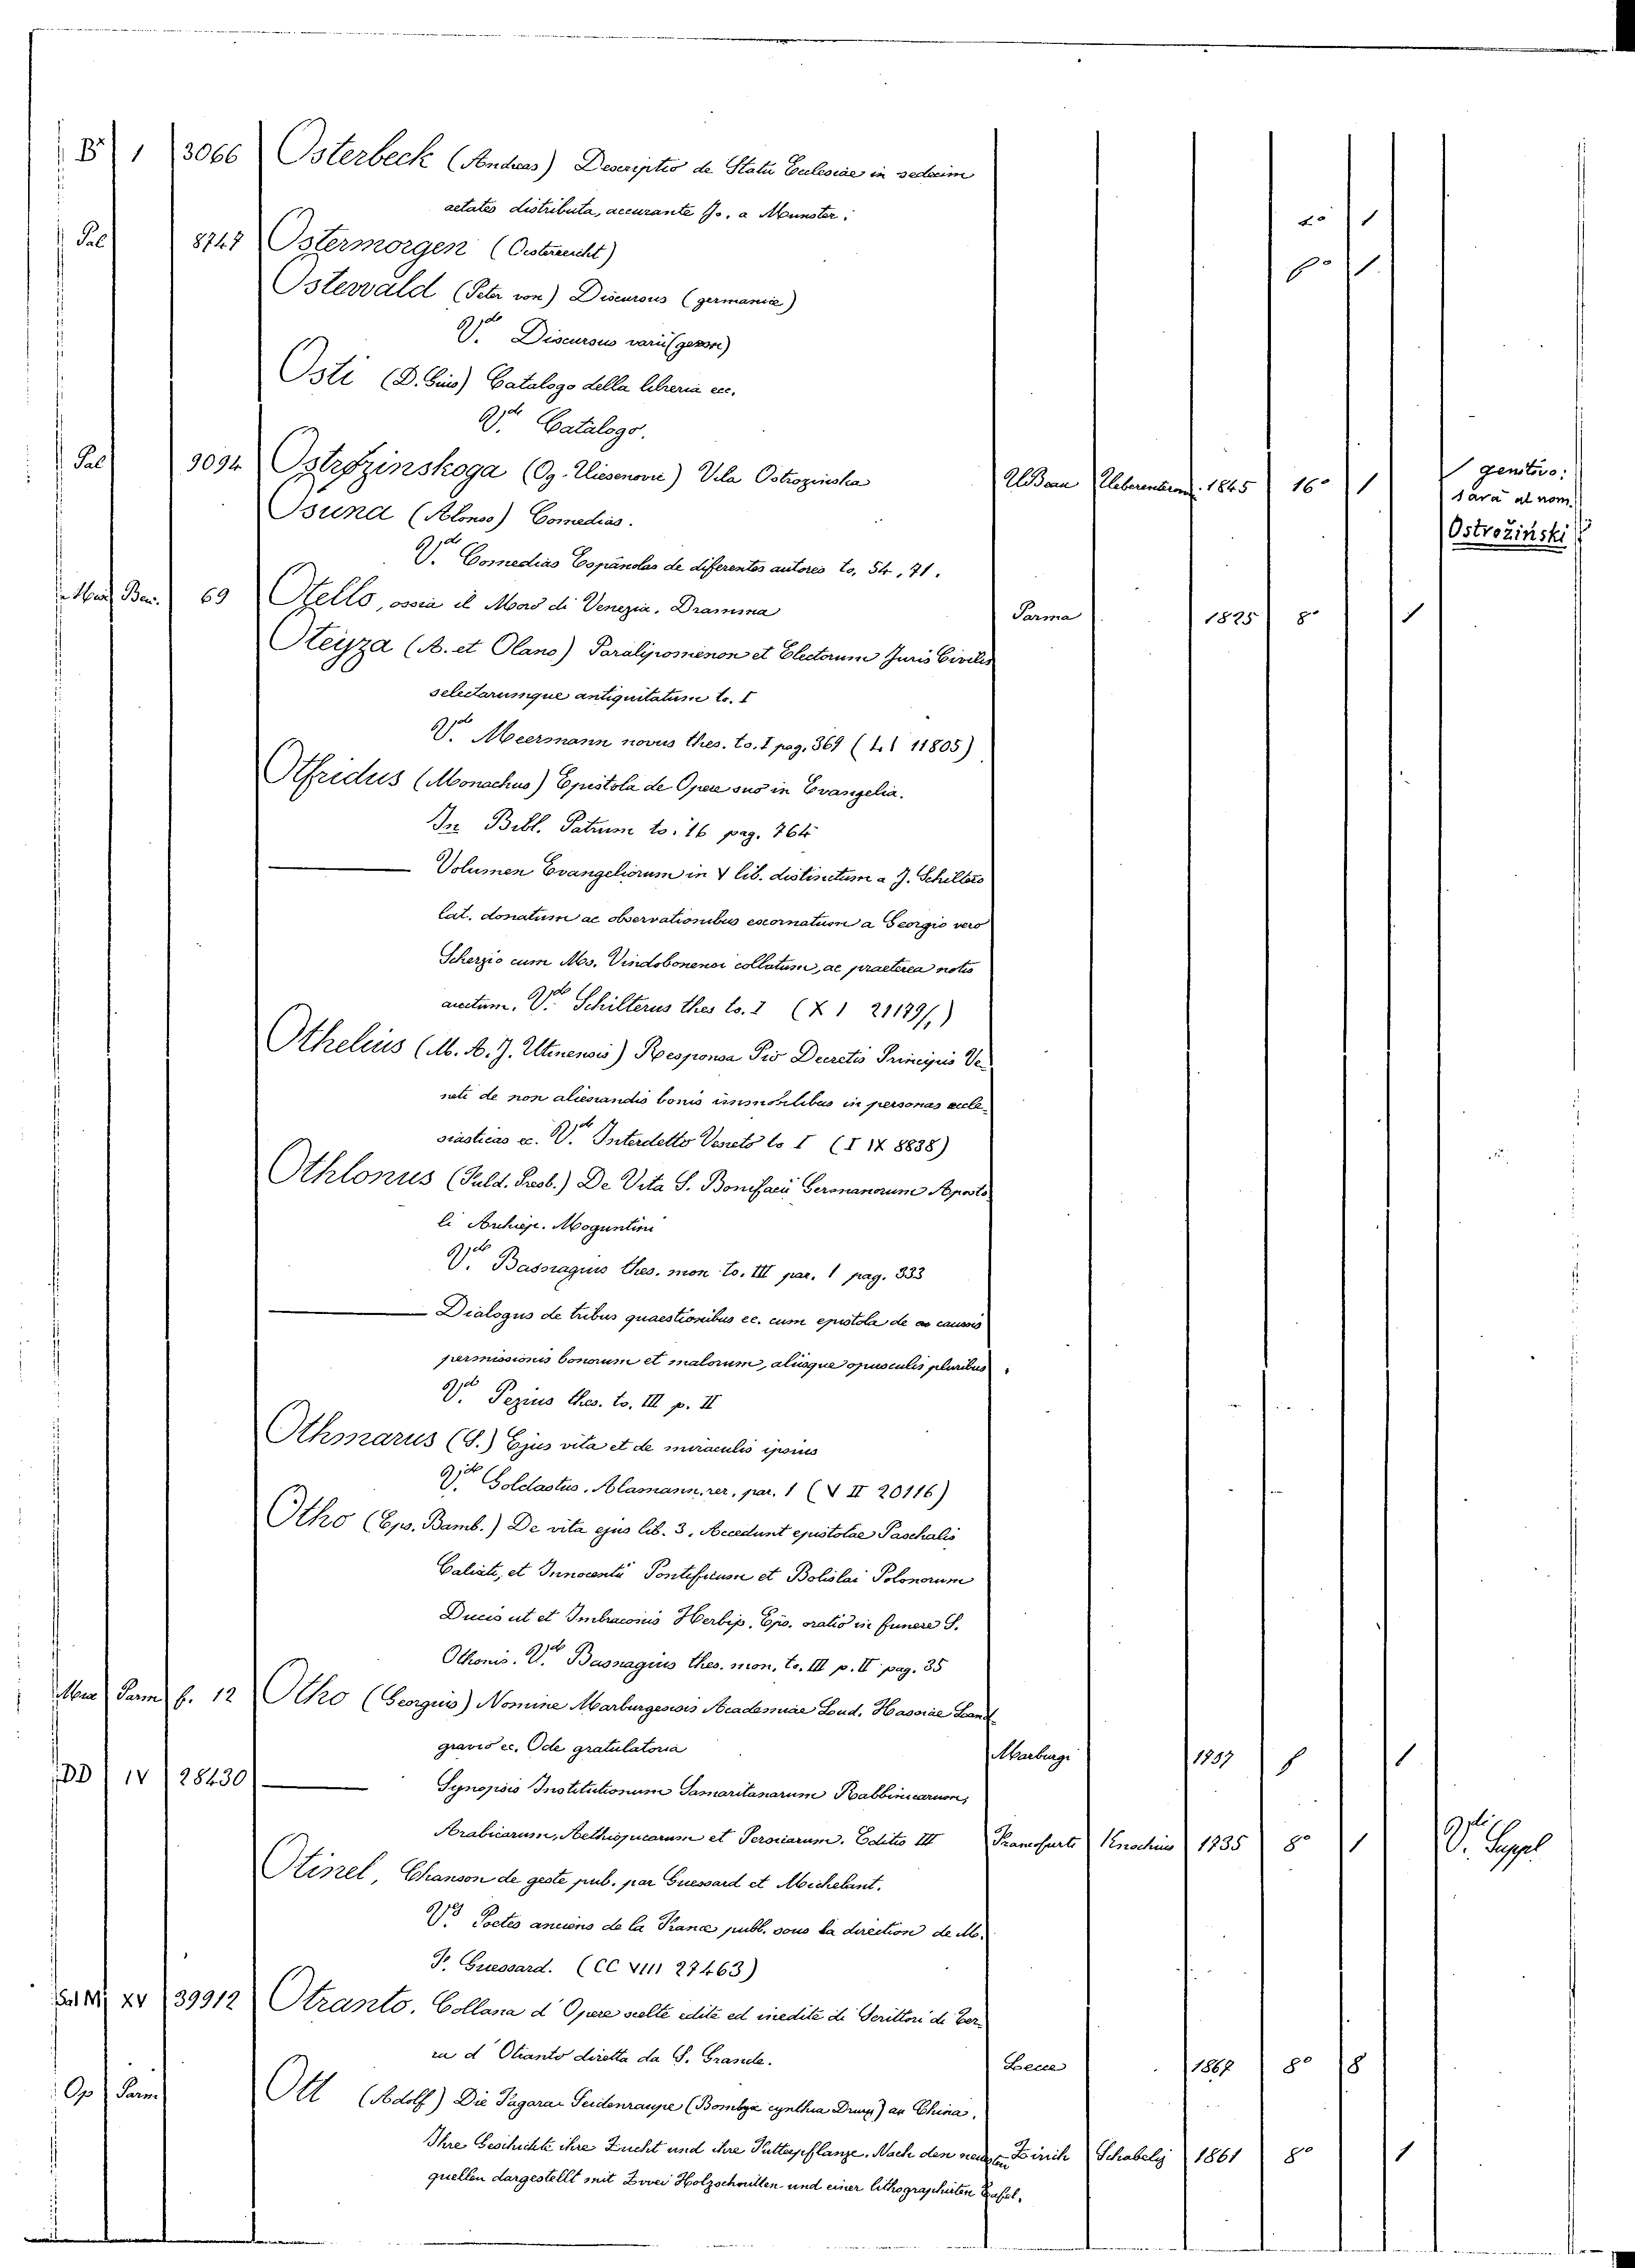 B 1 3066 Osterbeck (Andreas) Descriptio de Statu Eclesiae in sedecim
aetates distributa, accurante Jo. a Munster. 4° 1
Pal 8747 Ostermorgen (Oesterreicht) 6° 1
Ostervald (Peter von) Discursus (germanice)
Vde Discursus varii
Osti (D. Gius) Catalogo della libreria ec.
Vde Catalogo.
Pal 9094 Ostrozinskoga (Og. Uliesenovic) Vila Ostrozinska U Bean Ueberenteron. 1845 16° 1 genitivo:
sarà al nom.
Ostrožinski
Osuna (Alonso) Comedias.
Vde Comedias Espãnolas de diferentes autores to. 54, 71.
Mus Ben. 69 Otello, ossia il Moro di Venezia. Dramma Parma 1825 8° 1
Oteyza (A. et Olano) Paralipomenon et Electorum Juris Civilis
selectarumque antiquitatum to. I
Vde Meermann novus thes. to. I pag. 369 (L I 11805)
Otfridus (Monachus) Epistola de Opere suo in Evangelia.
In Bibl. Patrum to. 16 pag. 764
— Volumen Evangeliorum in V lib. distinctum a J. Schiltero
lat. donatum ac observationibus exornatum a Georgio vero
Scherzio cum Ms. Vindobonensi collatum, ac praeterea notis
auctum. Vde Schilterus thes to. I (X I 21179/1)
Othelius (M. A. J. Utinensis) Responsa Pro Decretis Principis Ve-
neti de non alienandis bonis immobilibus in personas eccle-
siasticas ec. Vde Interdetto Veneto to I (I IX 8838)
Othlonus (Fuld. Presb.) De Vita S. Bonifacii Germanorum Aposto-
li Archiep. Moguntini
Vde Basnagius thes. mon to. III par. 1 pag. 333
— Dialogus de tribus quaestionibus ec. cum epistola de caussis
permissionis bonorum et malorum, aliisque opusculis pluribus.
Vde Pezius thes. to. III p. II
Othmarus (S.) Ejus vita et de miraculis ipsius
Vde Goldastus. Alamann. rer. par. 1 (V II 20116)
Otho (Eps. Bamb.) De vita ejus lib. 3. Accedunt epistolae Paschalis
Calixti, et Innocentii Pontificum et Bolislai Polonorum
Ducis ut et Imbraconis Herbip. Eps. oratio in funere S.
Othonis. Vde Basnagius thes. mon. to. III p. II pag. 35
Misc Parm f. 12 Otho (Georgius) Nomine Marburgensis Academiae Lud. Hassiae Land-
gravio ec. Ode gratulatoria Marburgi 1
DD IV 28430 — Synopsis Institutionum Samaritanarum Rabbinicarum,
Arabicarum, Aethiopicarum et Persicarum. Editio III Francofurti Knochius 1735 8° 1 V. Suppl
Otinel, Chanson de geste pub. par Guessard et Michelant.
Vde Poetes anciens de la France publ. sous la direction de M.
F. Guessard. (CC VIII 27463)
Sal M XV 39912 Otranto. Collana d' Opere scelte edite ed inedite di Scrittori di Ter-
ra d' Otranto diretta da S. Grande. Lecce 1867 8° 8
Op Parm Ott (Adolf) Die Fagara Seidenraupe (Bombyx cynthia Drury) an China.
Ihre Geschichte ihre Zucht und ihre Futterpflanze. Nach den neuesten Zürich Schabelij 1861 8° 1
quellen dargestellt mit Zwei Holzschnitten und einer lithographirten Tafel.